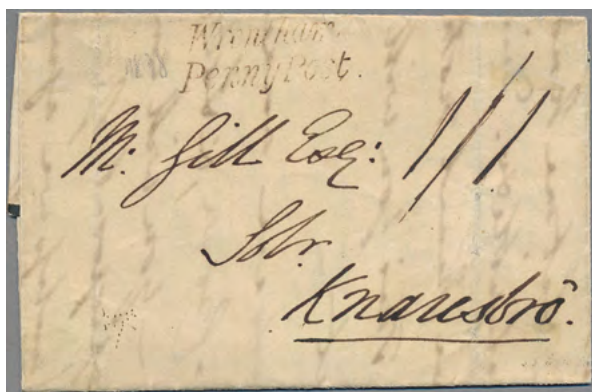 Wrentham
Penny Post.
M. Gill Esq: 1/1
Solr.
Knaresbrô.